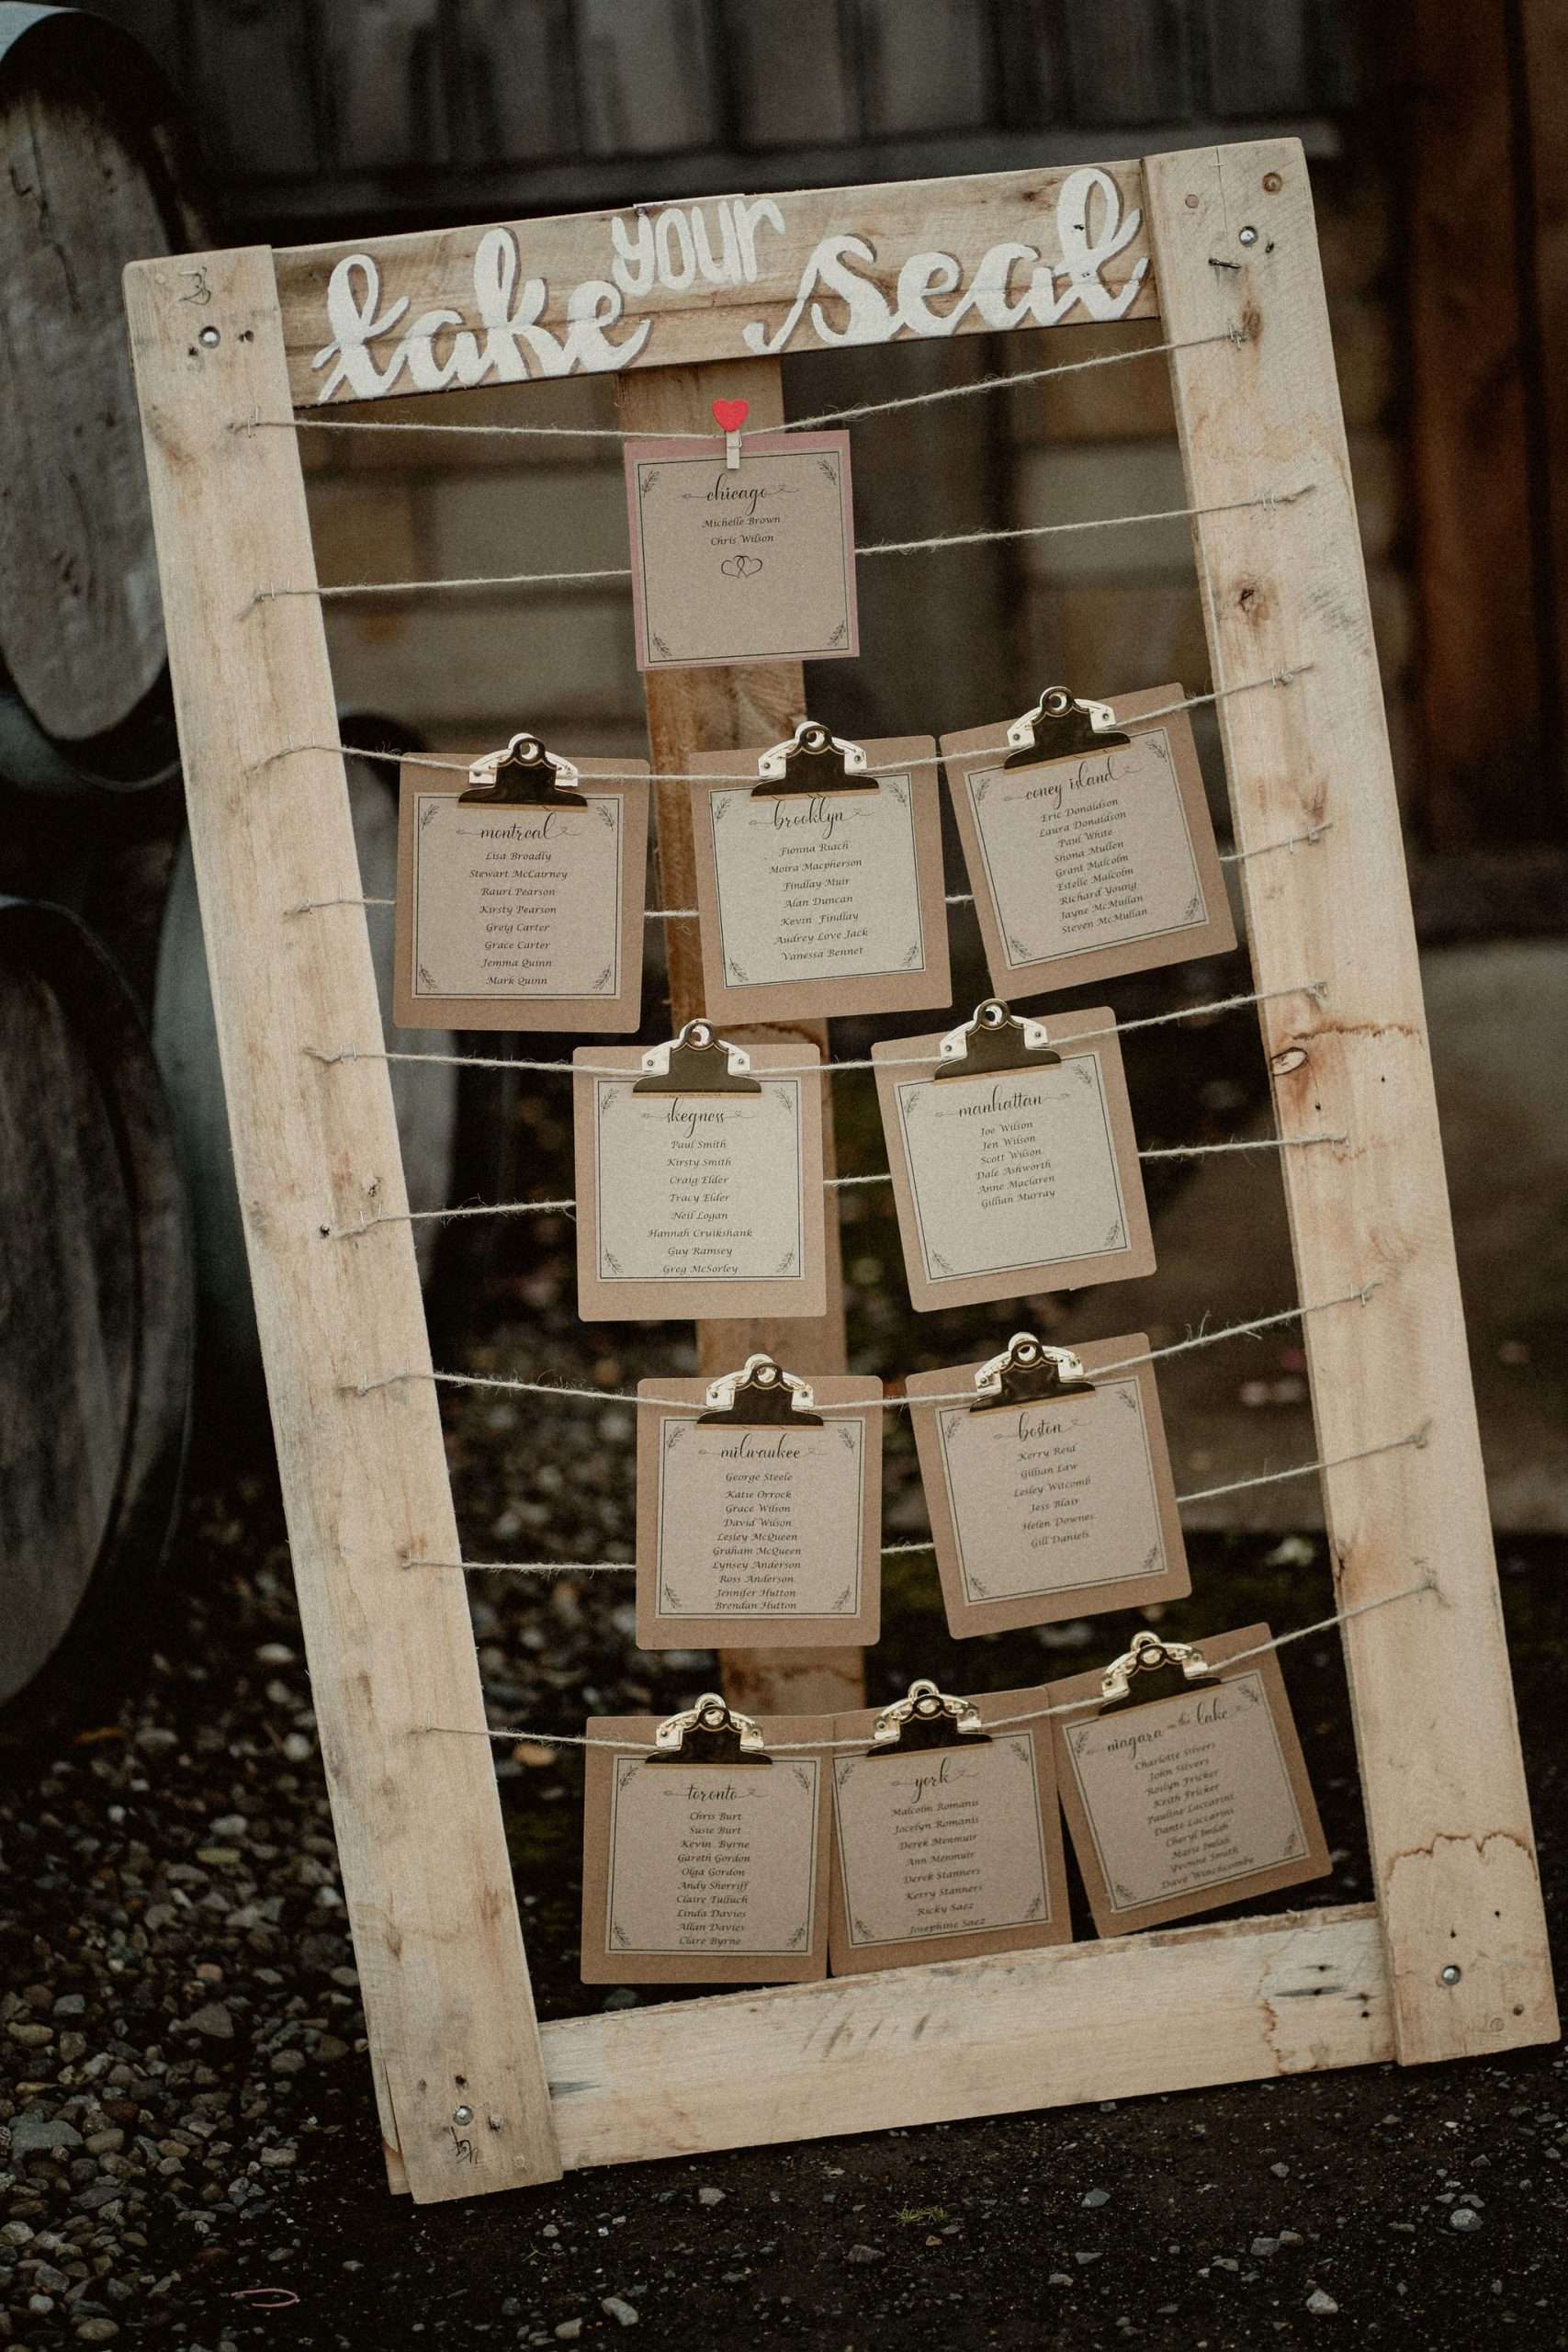 take your seat
chicago
Michelle Brown
Chris Wilson
montreal
Lisa Broadly
Stewart McCairney
Rauri Pearson
Kirsty Pearson
Greig Carter
Grace Carter
Jemma Quinn
Mark Quinn
brooklyn
Fionna Riach
Moira Macpherson
Findlay Muir
Alan Duncan
Kevin Findlay
Audrey Love Jack
Vanessa Bennet
coney island
Eric Donaldson
Laura Donaldson
Paul White
Shona Mullen
Grant Malcolm
Estelle Malcolm
Richard Young
Jayne McMullan
Steven McMullan
skegness
Paul Smith
Kirsty Smith
Craig Elder
Tracy Elder
Neil Logan
Hannah Cruikshank
Guy Ramsey
Greg McSorley
manhattan
Joe Wilson
Jen Wilson
Scott Wilson
Dale Ashworth
Anne Maclaren
Gillian Murray
milwaukee
George Steele
Katie Orrock
Grace Wilson
David Wilson
Lesley McQueen
Graham McQueen
Lynsey Anderson
Ross Anderson
Jennifer Hutton
Brendan Hutton
boston
Kerry Reid
Gillian Law
Lesley Witcomb
Jess Blair
Helen Downes
Gill Daniels
toronto
Chris Burt
Susie Burt
Kevin Byrne
Gareth Gordon
Olga Gordon
Andy Sherriff
Claire Tulluch
Linda Davies
Allan Davies
Clare Byrne
york
Malcolm Romanis
Jocelyn Romanis
Derek Menmuir
Ann Menmuir
Derek Stanners
Kerry Stanners
Ricky Saez
Josephine Saez
niagara on the lake
Charlotte Silvers
John Silvers
Roslyn Fricker
Keith Fricker
Pauline Laccarini
Dante Laccarini
Cheryl Imlah
Mario Imlah
Yvonne Smith
Dave